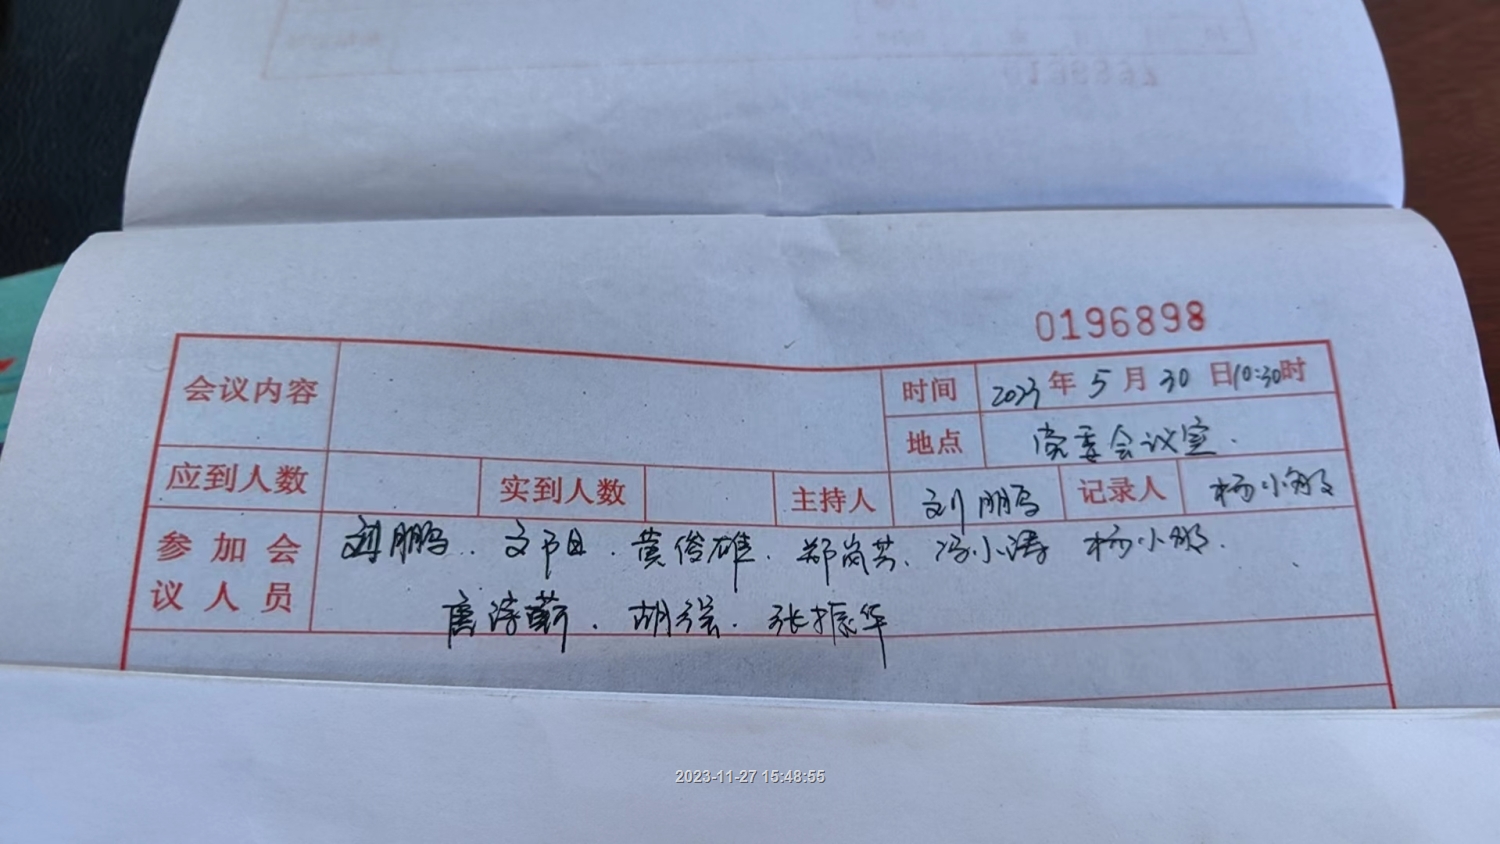 0196898
会议内容 时间 2023年5月30日10:30时
地点 党委会议室.
应到人数 实到人数 主持人 刘鹏 记录人 杨小
参加会 刘鹏. 文阳. 黄俊雄. 郑岗芳. 冯小涛 杨小
议人员 唐. 胡强. 张振华
2023-11-27 15:48:55